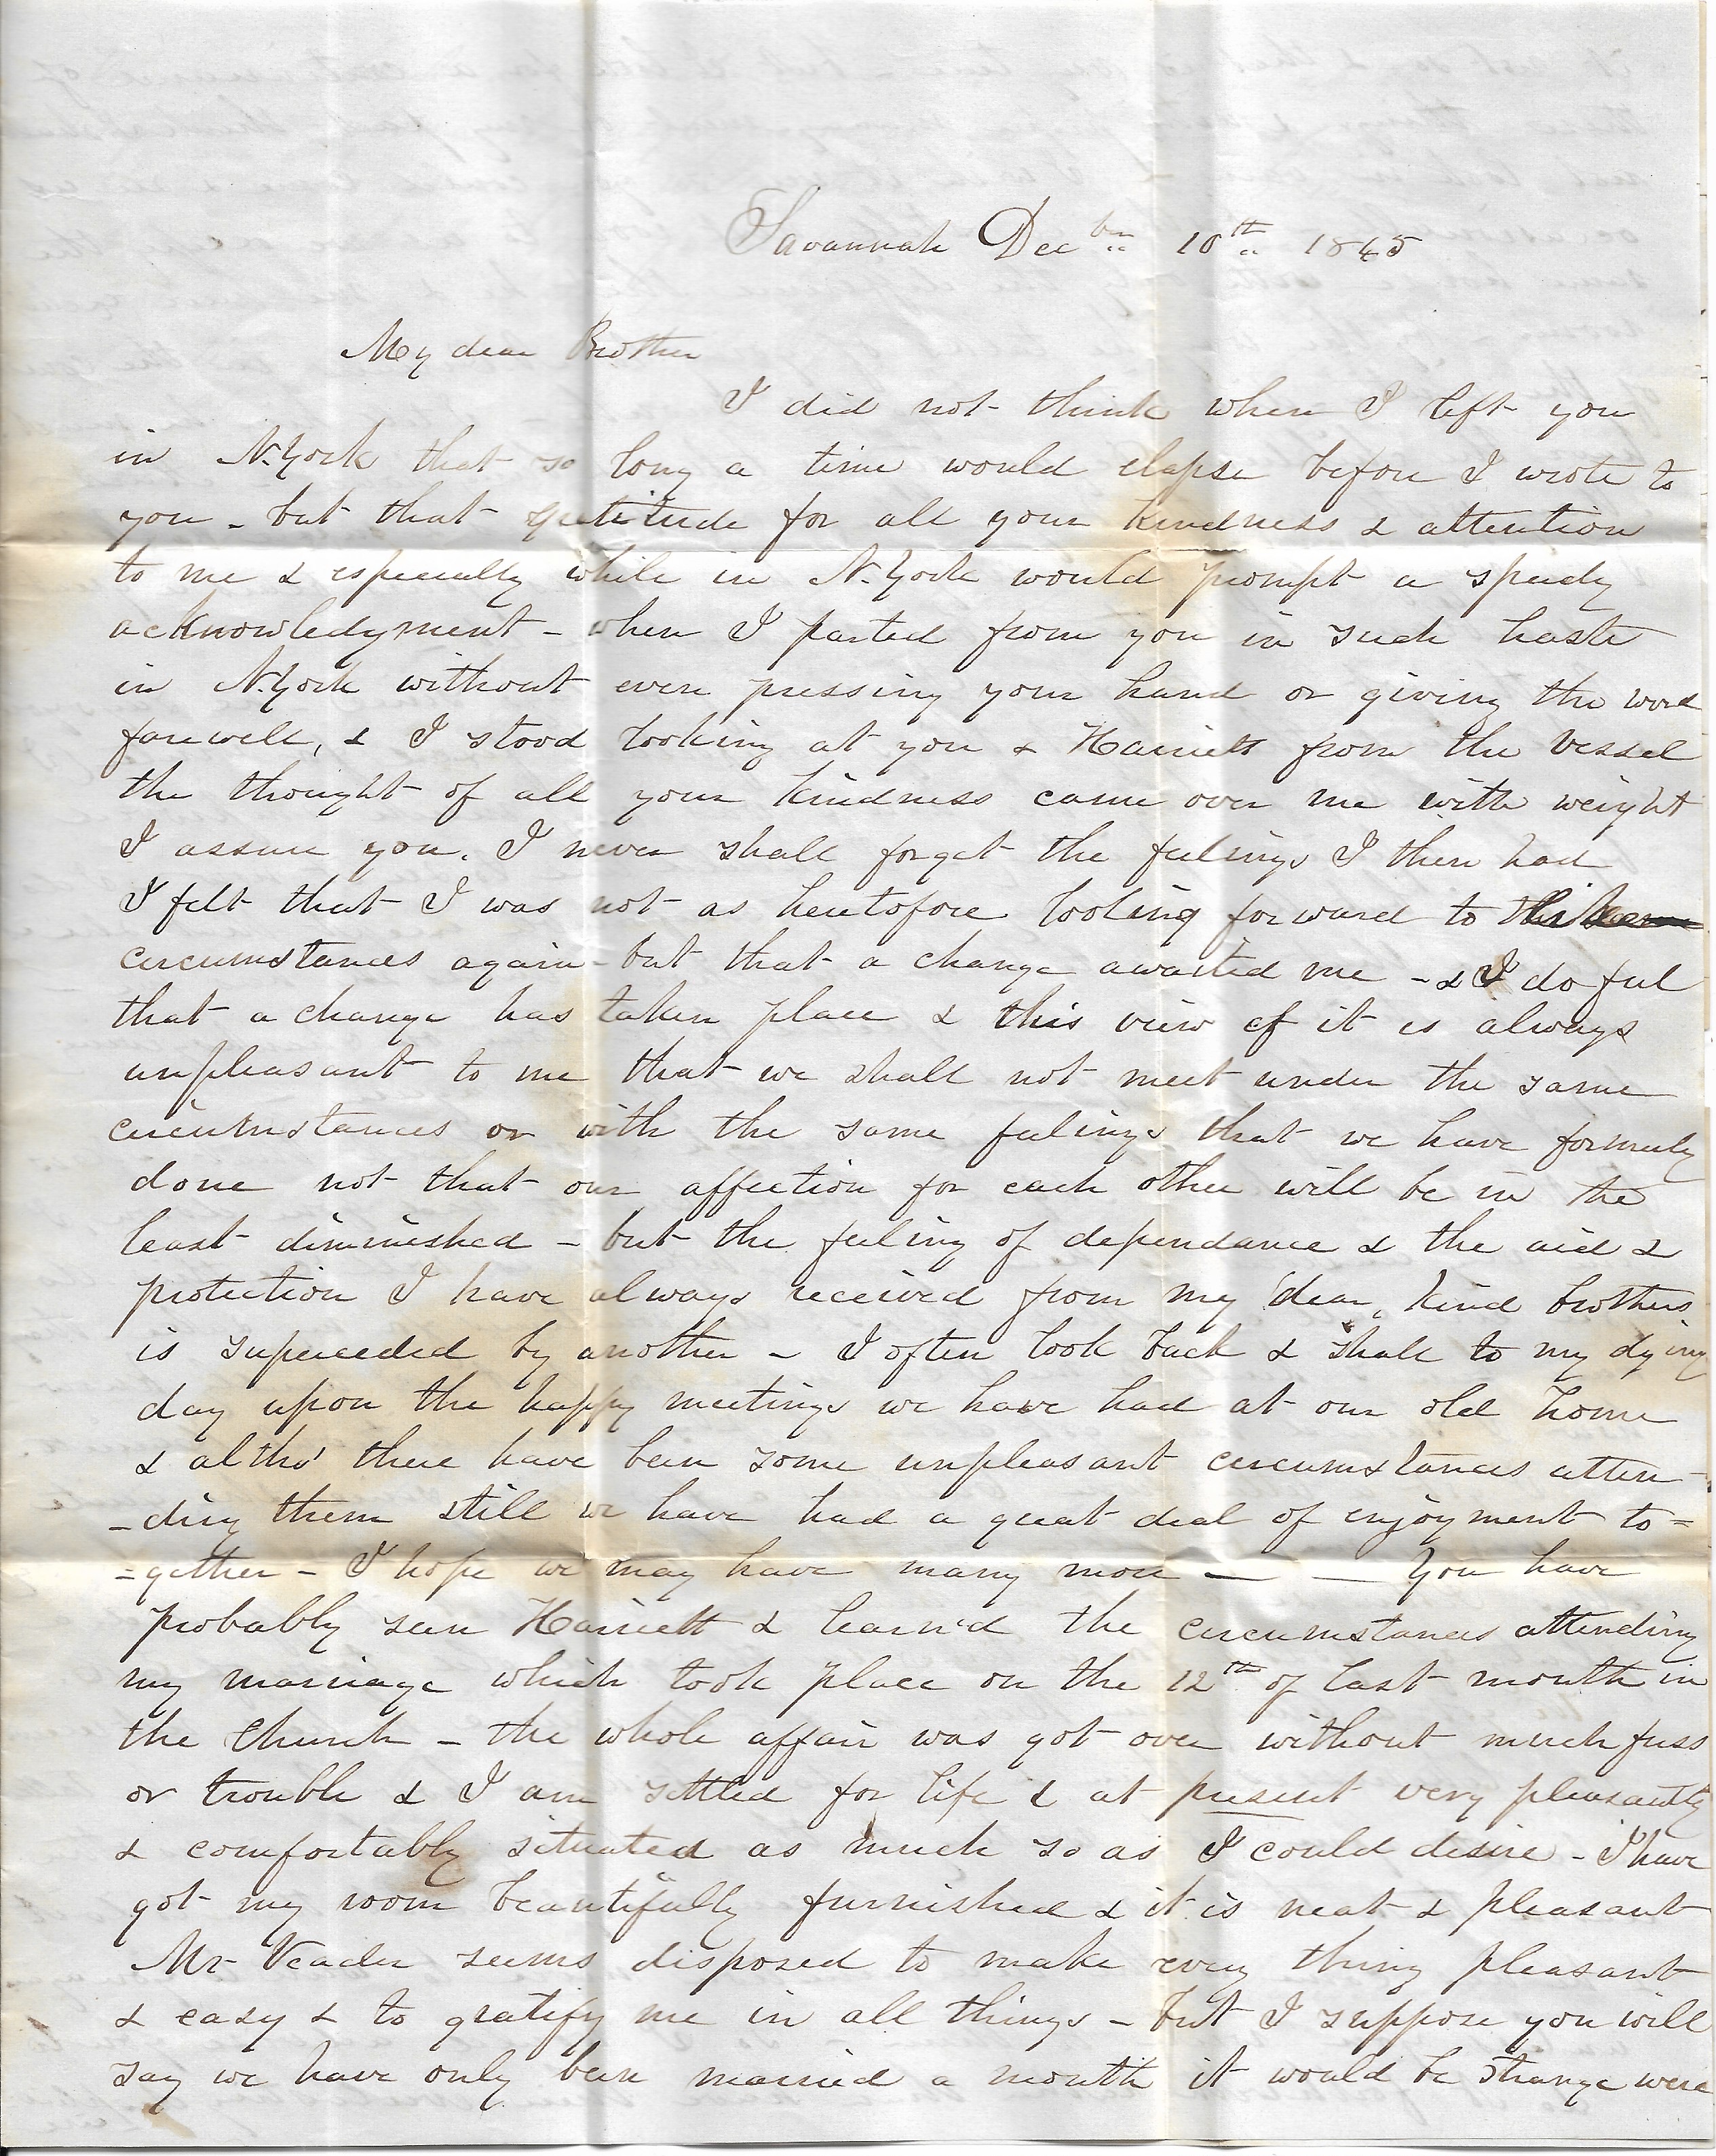 Savannah Dec ber 10th 1845
My dear Brother
I did not think when I left you
in N.York that so long a time would elapse before I wrote to
you - but that gratitude for all your kindness & attention
to me & especially while in N.York would prompt a speedy
acknowledgment - when I parted from you in such haste
in N.York without even pressing your hand or giving the word
farewell, & I stood looking at you & Harriett from the vessel
the thought of all your kindness came over me with weight
I assure you. I never shall forget the feelings I then had
I felt that I was not as heretofore looking forward to
circumstances again - but that a change awaited me - & I do feel
that a change has taken place & this view of it is always
unpleasant to me that we shall not meet under the same
circumstances or with the same feelings that we have formerly
done not that our affection for each other will be in the
least diminished - but the feeling of dependance & the aid &
protection I have always received from my dear, kind brothers
is superceded by another - I often look back & shall to my dying
day upon the happy meetings we have had at our old home
& altho' there have been some unpleasant circumstances atten-
-ding them still we have had a great deal of enjoyment to=
=gether - I hope we may have many more — — You have
probably seen Harriett & learn'd the circumstances attending
my marriage which took place on the 12th of last month in
the Church - the whole affair was got over without much fuss
or trouble & I am settled for life & at present very pleasantly
& comfortably situated as much so as I could desire - I have
got my room beautifully furnished & it is neat & pleasant
Mr Veader seems disposed to make every thing pleasant
& easy & to gratify me in all things - but I suppose you will
say we have only been married a month it would be strange were